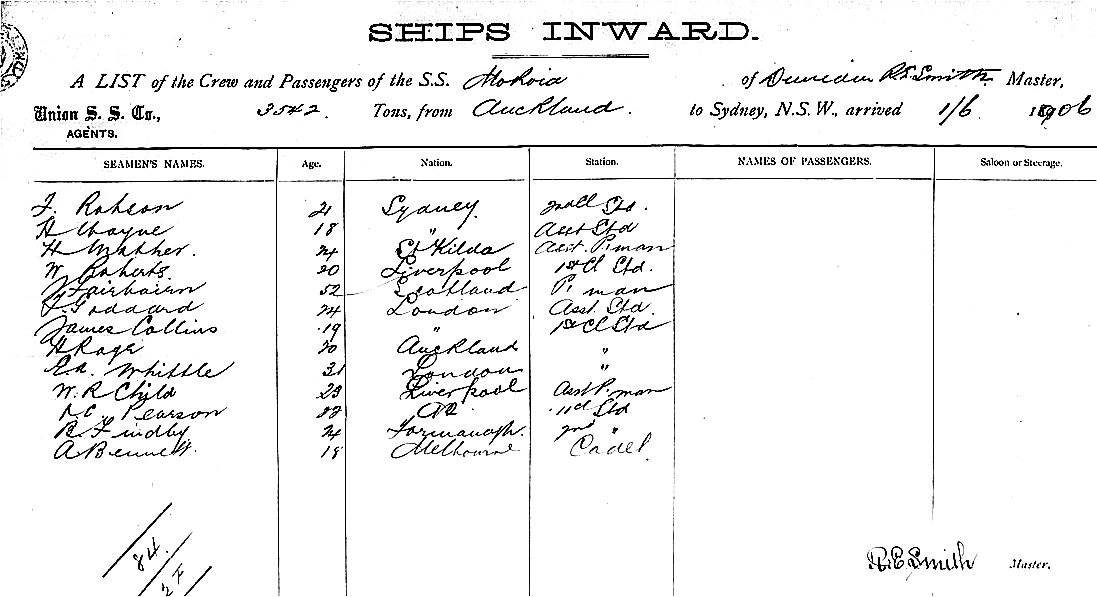 SHIPS INWARD.
A LIST of the Crew and Passengers of the S.S. Mokoia of Dunedin R.E. Smith Master,
Union S. S. Co., 3542 Tons, from Auckland. to Sydney, N.S.W., arrived 1/6 1906
AGENTS.
SEAMEN'S NAMES. Age. Nation. Station. NAMES OF PASSENGERS. Saloon or Steerage.
F. Robson 21 Sydney. 2nd Cl Std.
H Wayne 18 " Asst Std
H Mather. 24 St Kilda Asst. P. man
W. Roberts. 20 Liverpool 1st Cl Std.
J Fairbairn 52 Scotland P. man
F. Goddard 24 London Asst. Std
James Collins 19 " 1st Cl Std
H Rage 20 Auckland "
Ed. Whittle 31 London "
W. R Child 23 Liverpool Asst P. man
Pearson 22 Std
R. Findlay 24 2nd "
A Bennett. 18 Melbourne Cadet.
84
2 F
R. E Smith Master.